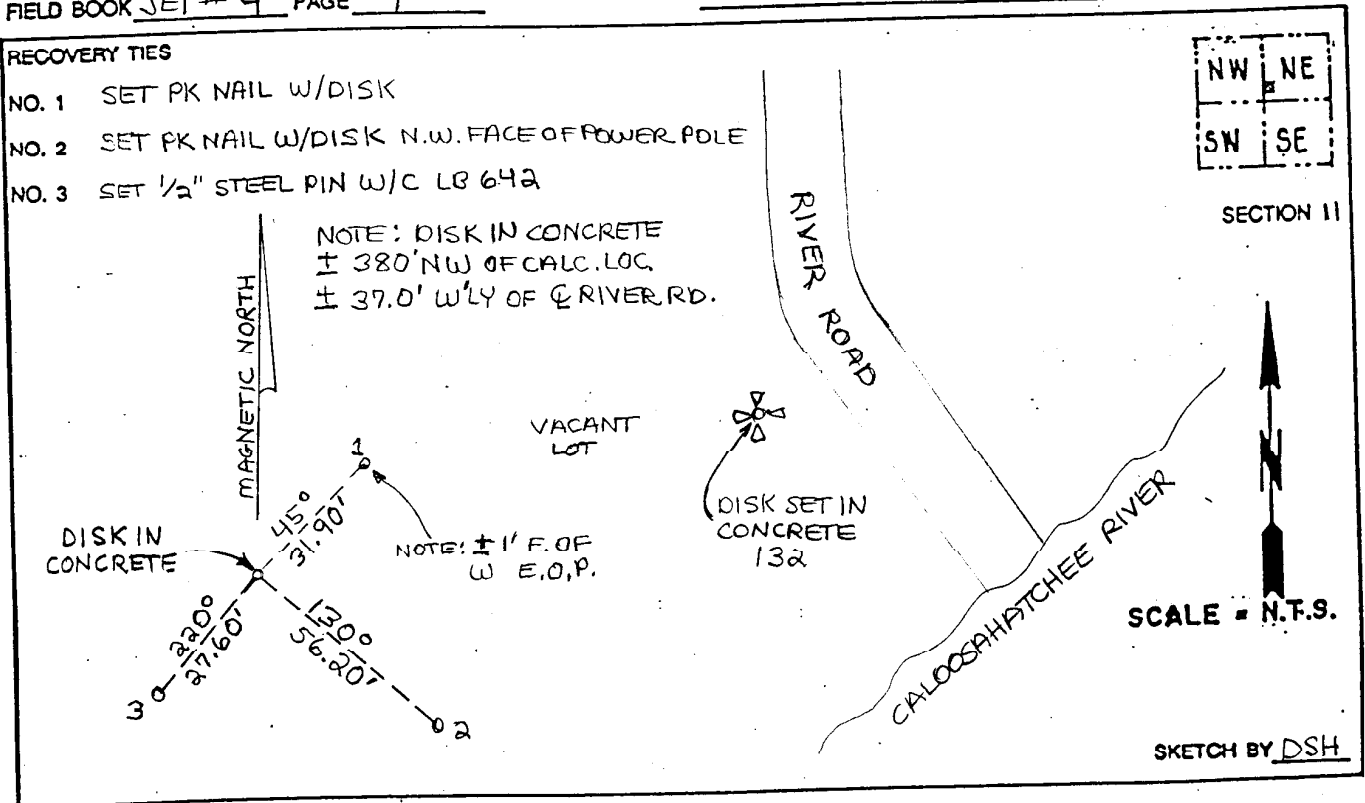 FIELD BOOK JEI # 9 PAGE
RECOVERY TIES
NO. 1 SET PK NAIL W/DISK
NO. 2 SET PK NAIL W/DISK N.W. FACE OF POWER POLE
NO. 3 SET 1/2" STEEL PIN W/C LB 642
NW NE
SW SE
SECTION 11
NOTE: DISK IN CONCRETE
± 380' NW OF CALC. LOC.
± 37.0' W'LY OF ℄ RIVER RD.
MAGNETIC NORTH
RIVER ROAD
VACANT
LOT
1
45°
31.90'
DISK IN
CONCRETE
NOTE: ± 1' E. OF
W E.O.P.
DISK SET IN
CONCRETE
132
N
220°
27.60'
130°
56.20'
3
2
CALOOSAHATCHEE RIVER
SCALE = N.T.S.
SKETCH BY DSH